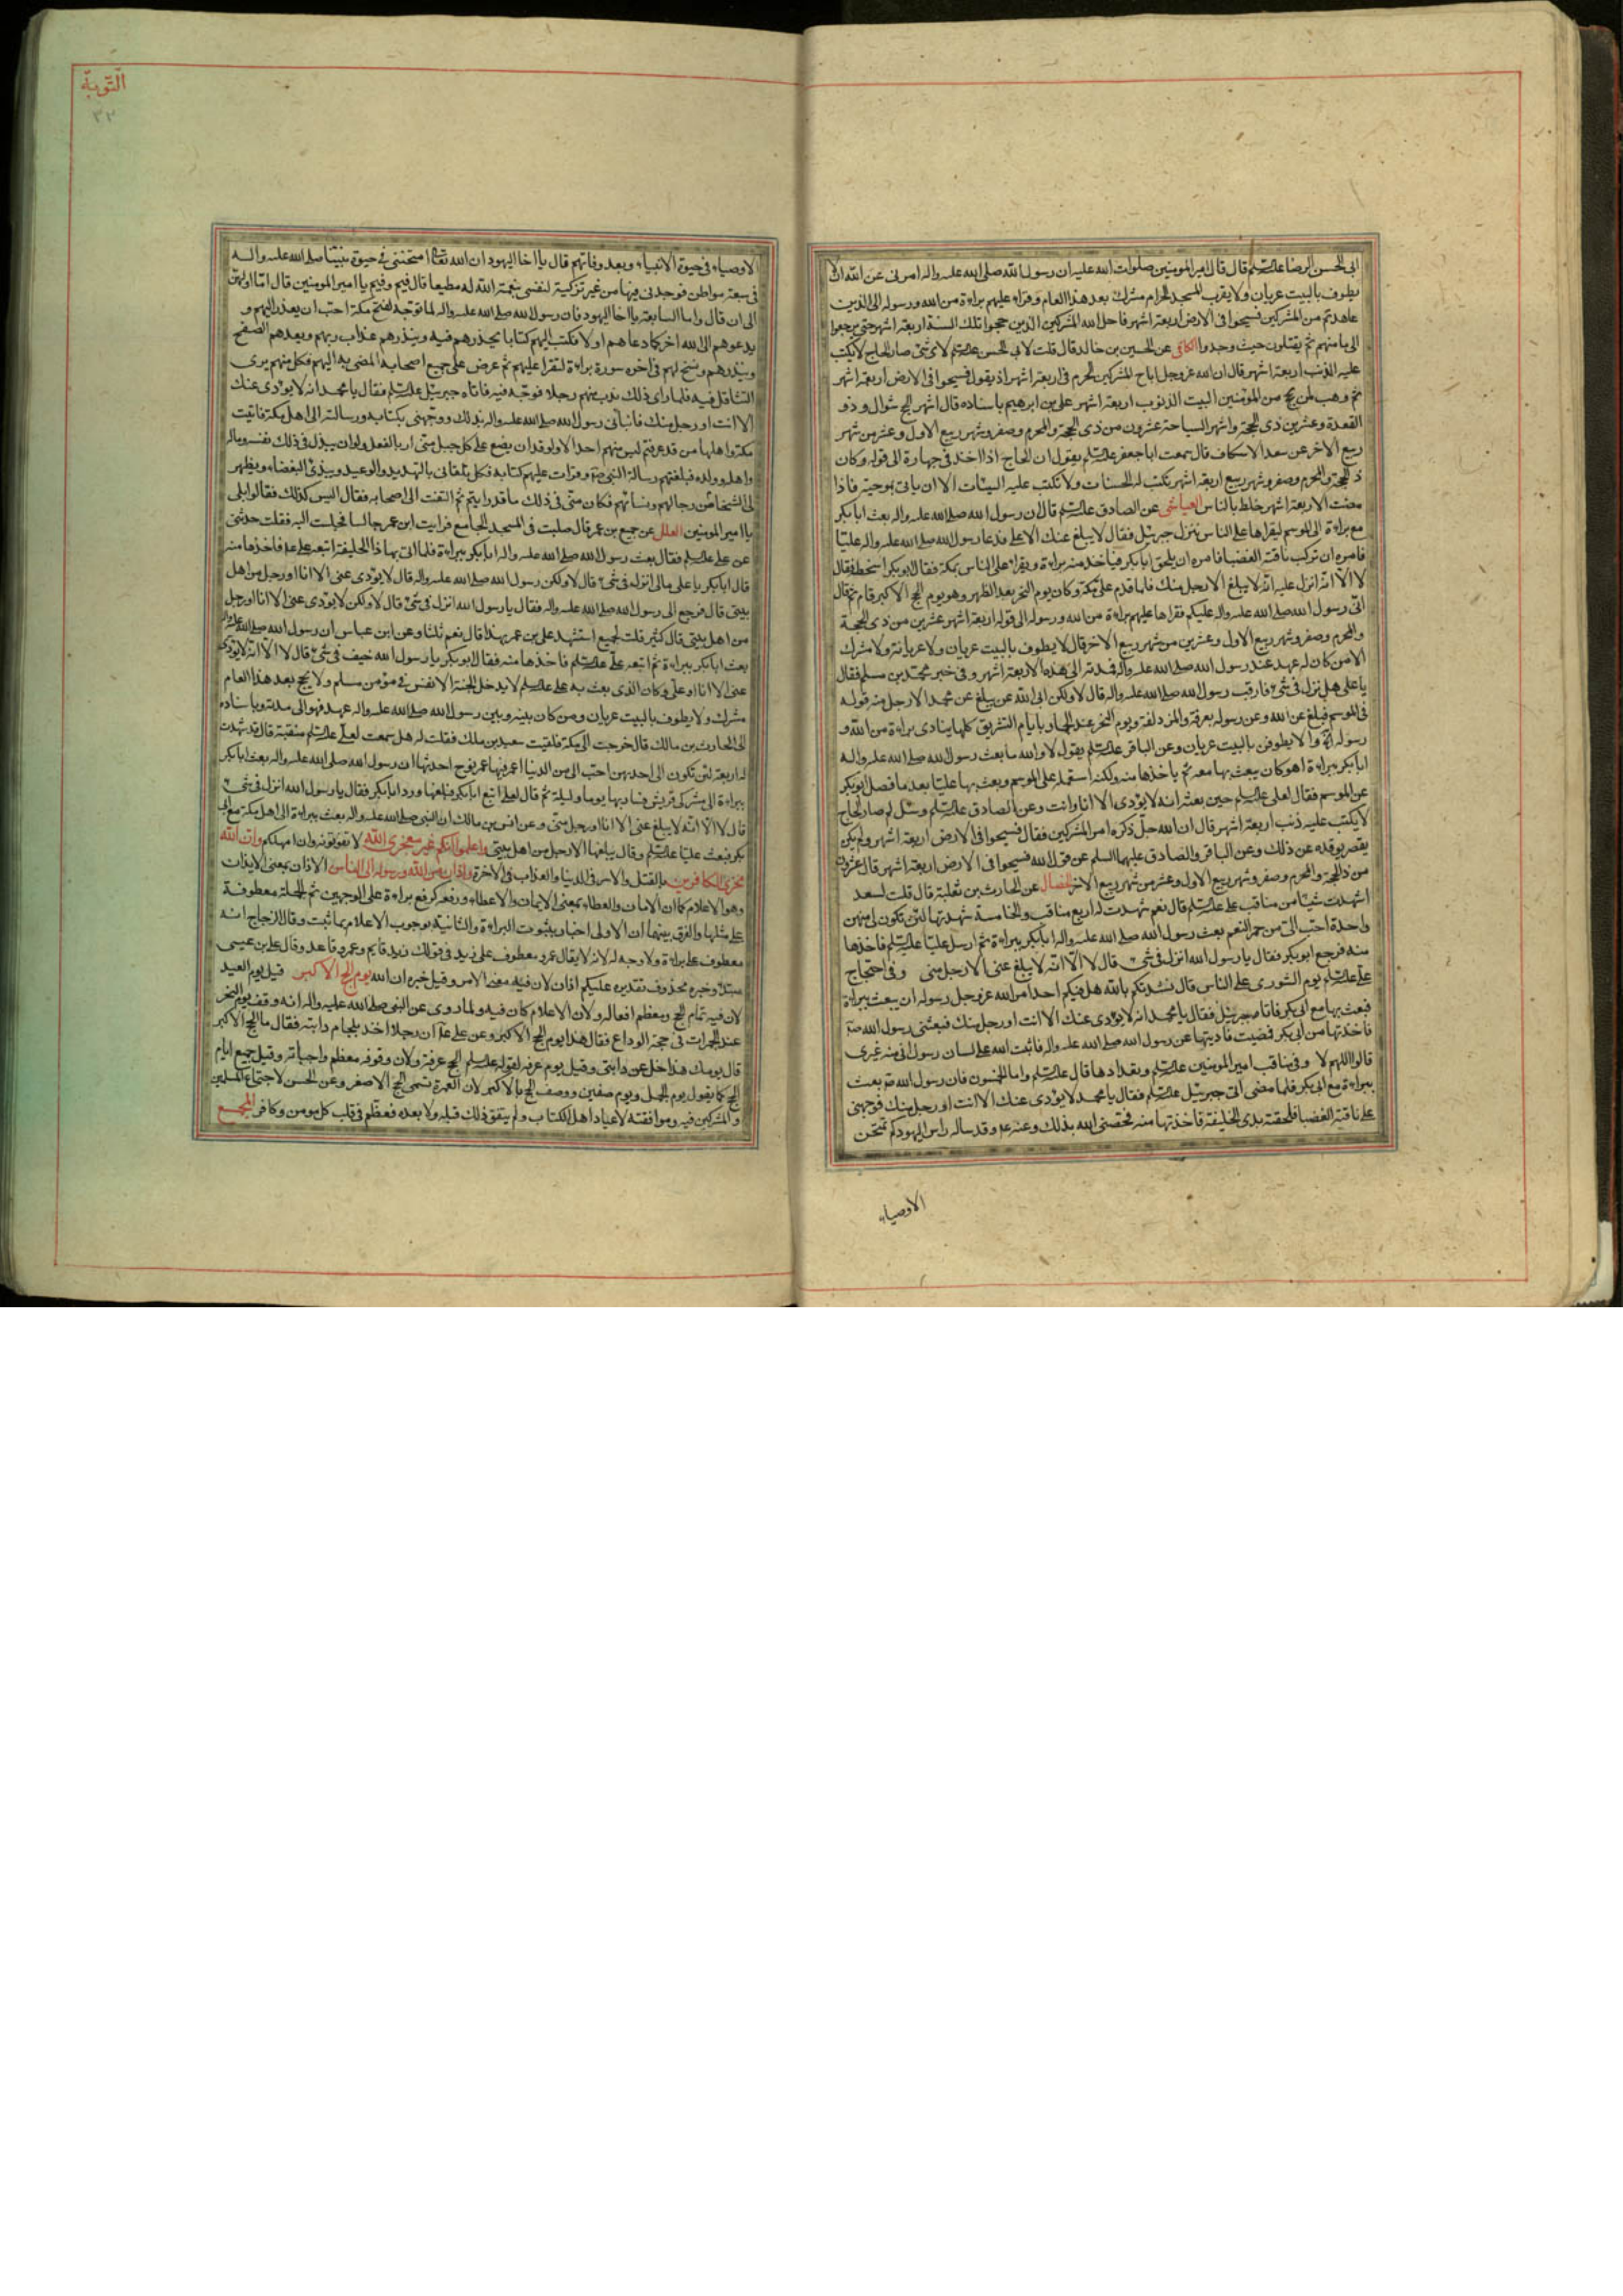 ابى الحسن الرضا عليه السلم قال قال امير المومنين صلوات الله عليه ان رسول الله صلى الله عليه واله امرنى عن الله ان لا
يطوف بالبيت عريان ولا يقرب المسجد الحرام مشرك بعد هذا العام وقراء عليهم براءة من الله ورسوله الى الذين
عاهدتم من المشركين فسيحوا فى الارض اربعة اشهر فاحل الله المشركين الذين حجوا تلك السنة اربعة اشهر حتى يرجعوا
الى مامنهم ثم يقتلون حيث وجدوا الكافى عن الحسين بن خالد قال قلت لابى الحسن عليه السلم لاى شئ صار الحاج لا يكتب
عليه الذنب اربعة اشهر قال ان الله عز وجل اباح المشركين الحرم فى اربعة اشهر اذ يقول فسيحوا فى الارض اربعة اشهر
ثم وهب لمن يحج من المؤمنين البيت الذنوب اربعة اشهر على بن ابرهيم باسناده قال اشهر الحج شوال وذو
القعدة وعشر من ذى الحجة واشهر السياحة عشرون من ذى الحجة والمحرم وصفر وشهر ربيع الاول وعشر من شهر
ربيع الاخر عن سعد الاسكاف قال سمعت ابا جعفر عليه السلم يقول ان الحاج اذا اخذ فى جهازه الى قوله وكان
ذ الحجة والمحرم وصفر وشهر ربيع اربعة اشهر يكتب له الحسنات ولا تكتب عليه السيئات الا ان ياتى بموجبة فاذا
مضت الاربعة اشهر خلط بالناس العياشى عن الصادق عليه السلم قال ان رسول الله صلى الله عليه واله بعث ابا بكر
مع براءة الى الموسم ليقراها على الناس فنزل جبرئيل فقال لا يبلغ عنك الا على فدعا رسول الله صلى الله عليه واله عليا
فامره ان تركب ناقته الغضبا فامره ان يلحق ابا بكر فياخذ منه براءة ويقراء على الناس بمكة فقال ابو بكر اسخط فقال
لا الا انه انزل عليه انه لا يبلغ الا رجل منك فلما قدم على مكة وكان يوم النحر بعد الظهر وهو يوم الحج الاكبر قام ثم قال
انى رسول الله صلى الله عليه واله عليكم فقراها عليهم براءة من الله ورسوله الى قوله اربعة اشهر عشرين من ذى الحجة
والمحرم وصفر وشهر ربيع الاول وعشرين من شهر ربيع الاخر قال لا يطوف بالبيت عريان ولا عريانة ولا مشرك
الا من كان له عهد عند رسول الله صلى الله عليه واله فمدته الى هذه الاربعة اشهر وفى خبر محمد بن مسلم فقال
يا على هل نزل فى شئ فارقت رسول الله صلى الله عليه واله قال لا ولكن ابى الله عن يبلغ عن محمد الا رجل منه قوله
فى الموسم فبلغ عن الله وعن رسوله بعرفة والمزدلفة ويوم النحر عند الجمار وبايام التشريق كلها ينادى براءة من الله و
رسوله الآية والا يطوفن بالبيت عريان وعن الباقر عليه السلم يقول لا والله ما بعث رسول الله صلى الله عليه واله
ابا بكر ببراءة اهو كان يبعث بها معه ثم ياخذها منه ولكنه استعمله على الموسم وبعث بها عليا بعد ما فصل ابو بكر
عن الموسم فقال لعلى عليه السلم حين بعثه انه لا يؤدى الا انا وانت وعن الصادق عليه السلم وسئل لم صار الحاج
لا يكتب عليه ذنب اربعة اشهر قال ان الله جل ذكره امر المشركين فقال فسيحوا فى الارض اربعة اشهر ولم يكن
يقصر بوفده عن ذلك وعن الباقر والصادق عليهما السلم عن قول الله فسيحوا فى الارض اربعة اشهر قال عشرون
من ذ الحجة والمحرم وصفر وشهر ربيع الاول وعشر من شهر ربيع الاخر الخصال عن الحارث بن ثعلبة قال قلت لسعد
اشهدت شيئا من مناقب على عليه السلم قال نعم شهدت له اربع مناقب والخامسة شهدتها لئن تكون لى منهن
واحدة احب الى من حمر النعم بعث رسول الله صلى الله عليه واله ابا بكر ببراءة ثم ارسل عليا عليه السلم فاخذها
منه فرجع ابو بكر فقال يا رسول الله انزل فى شئ قال لا الا انه لا يبلغ عنى الا رجل منى وفى احتجاج
على عليه السلم يوم الشورى على الناس قال نشدتكم بالله هل فيكم احد امر الله عز وجل رسوله ان يبعث ببراءة
فبعث بها مع ابى بكر فاتاه جبرئيل فقال يا محمد انه لا يؤدى عنك الا انت او رجل منك فبعثنى رسول الله صم
فاخذتها من ابى بكر فمضيت فاديتها عن رسول الله صلى الله عليه واله فاثبت الله على لسان رسوله انى منه غيرى
قالوا اللهم لا وفى مناقب امير المومنين عليه السلم وتعدادها قال عليه السلم واما الخمسون فان رسول الله صم بعث
ببراءة مع ابى بكر فلما مضى اتى جبرئيل عليه السلم فقال يا محمد لا يؤدى عنك الا انت او رجل منك فوجهنى
على ناقته الغضبا فلحقته بذى الخليفة فاخذتها منه فخصنى الله بذلك وعنه عم وقد ساله راس اليهود كم تمتحن
الاوصياء
التوبة
٣٢
الاوصياء فى حيوة الانبياء وبعد وفاتهم قال يا اخا اليهود ان الله تعالى امتحننى فى حيوة نبينا صلى الله عليه واله
فى سبعة مواطن فوجدنى فيها من غير تزكية لنفسى بنعمة الله له مطيعا قال فيم وفيم يا امير المومنين قال اما اولهن
الى ان قال واما السابعة يا اخا اليهود فان رسول الله صلى الله عليه واله لما توجه لفتح مكة احب ان يعذر اليهم و
يدعوهم الى الله اخر كما دعاهم اولا فكتب اليهم كتابا يحذرهم فيه وينذرهم عذاب ربهم ويعدهم الصفح
وينذرهم ونسخ لهم فى اخره سورة براءة لتقرا عليهم ثم عرض على جميع اصحابه المضى به اليهم فكل منهم يرى
التثاقل فيه فلما راى ذلك ندب منهم رجلا فوجه فيه فاتاه جبرئيل عليه السلم فقال يا محمد انه لا يؤدى عنك
الا انت او رجل منك فانبانى رسول الله صلى الله عليه واله بذلك ووجهنى بكتابه ورسالته الى اهل مكة فاتيت
مكة واهلها من قد عرفتم ليس منهم احد الا ولو قدر ان يضع على كل جبل منى اربا لفعل ولو ان يبذل فى ذلك نفسه وماله
واهله وولده فبلغتهم رسالة النبى صم وقرات عليهم كتابه فكل يلقانى بالتهديد والوعيد ويبدى البغضاء ويظهر
لى الشحناء من رجالهم ونسائهم فكان منى فى ذلك ما قد رايتم ثم التفت الى اصحابه فقال اليس كذلك فقالوا بلى
يا امير المومنين العلل عن جميع بن عمر قال صليت فى المسجد الجامع فرايت ابن عمر جالسا فجلست اليه فقلت حدثنى
عن على عليه السلم فقال بعث رسول الله صلى الله عليه واله ابا بكر ببراءة فلما اتى بها ذا الحليفة اتبعه على عم فاخذها منه
قال ابا بكر يا على مالى انزل فى شئ قال لا ولكن رسول الله صلى الله عليه واله قال لا يؤدى عنى الا انا او رجل من اهل
بيتى قال فرجع الى رسول الله صلى الله عليه واله فقال يا رسول الله انزل فى شئ قال لا ولكن لا يؤدى عنى الا انا او رجل
من اهل بيتى قال كثير قلت لجميع استشهد على بن عمر بهذا قال نعم ثلثا وعن ابن عباس ان رسول الله صلى الله عليه واله
بعث ابا بكر ببراءة ثم اتبعه على عليه السلم فاخذها منه فقال ابو بكر يا رسول الله خيف فى شئ قال لا الا انه لا يؤدى
عنى الا انا او على وكان الذى بعث به على عليه السلم لا يدخل الجنة الا نفس مؤمن مسلم ولا يحج بعد هذا العام
مشرك ولا يطوف بالبيت عريان ومن كان بينه وبين رسول الله صلى الله عليه واله عهد فهو الى مدته وباسناده
الى الحارث بن مالك قال خرجت الى مكة فلقيت سعيد بن ملك فقلت له هل سمعت لعلى عليه السلم منقبة قال قد شهدت
له اربعة لئن تكون الى احديهن احب الى من الدنيا اعمر فيها عمر نوح احديها ان رسول الله صلى الله عليه واله بعث ابا بكر
ببراءة الى مشركى قريش فسار بها يوما وليلة ثم قال لعلى اتبع ابا بكر فبلغها ورد ابا بكر فقال يا رسول الله انزل فى شئ
قال لا الا انه لا يبلغ عنى الا انا او رجل منى وعن انس بن مالك ان النبى صلى الله عليه واله بعث ببراءة الى اهل مكة مع ابى
بكر فبعث عليا عليه السلم وقال يبلغها الا رجل من اهل بيتى واعلموا انكم غير معجزى الله لا تفوتونه وان امهلكم وان الله
مخزى الكافرين بالقتل والاسر فى الدنيا والعذاب فى الاخرة واذان من الله ورسوله الى الناس الاذان بمعنى الايذان
وهو الاعلام كما ان الامان والعطاء بمعنى الايمان والاعطاء ورفعه كرفع براءة على الوجهين ثم الجملة معطوفة
على مثلها والفرق بينهما ان الاولى اخبار بثبوت البراءة والثانية بوجوب الاعلام بما ثبت وقال الزجاج انه
معطوف على براءة ولا وجه له لانه لا يقال عمرو معطوف على زيد فى قولك زيد قايم وعمرو قاعد وقال على بن عيسى
مبتدء وخبره محذوف تقديره عليكم اذان لان فيه معنى الامر وقيل خبره ان الله يوم الحج الاكبر قيل يوم العيد
لان فيه تمام الحج ومعظم افعاله ولان الاعلام كان فيه ولما روى عن النبى صلى الله عليه واله انه وقف يوم النحر
عند الجمرات فى حجة الوداع فقال هذا يوم الحج الاكبر وعن على عم ان رجلا اخذ بلجام دابته فقال ما الحج الاكبر
قال يومك هذا خل عن دابتى وقيل يوم عرفه لقوله عليه السلم الحج عرفة ولان وقوفه معظم واجباته وقيل جميع ايام
الحج كما يقول يوم الجمل ويوم صفين ووصف الحج بالاكبر لان العمرة تسمى الحج الاصغر وعن الحسن لاجتماع المسلمين
والمشركين فيه وموافقته لاعياد اهل الكتاب ولم يتفق ذلك قبله ولا بعده فعظم فى قلب كل مومن وكافر المجمع